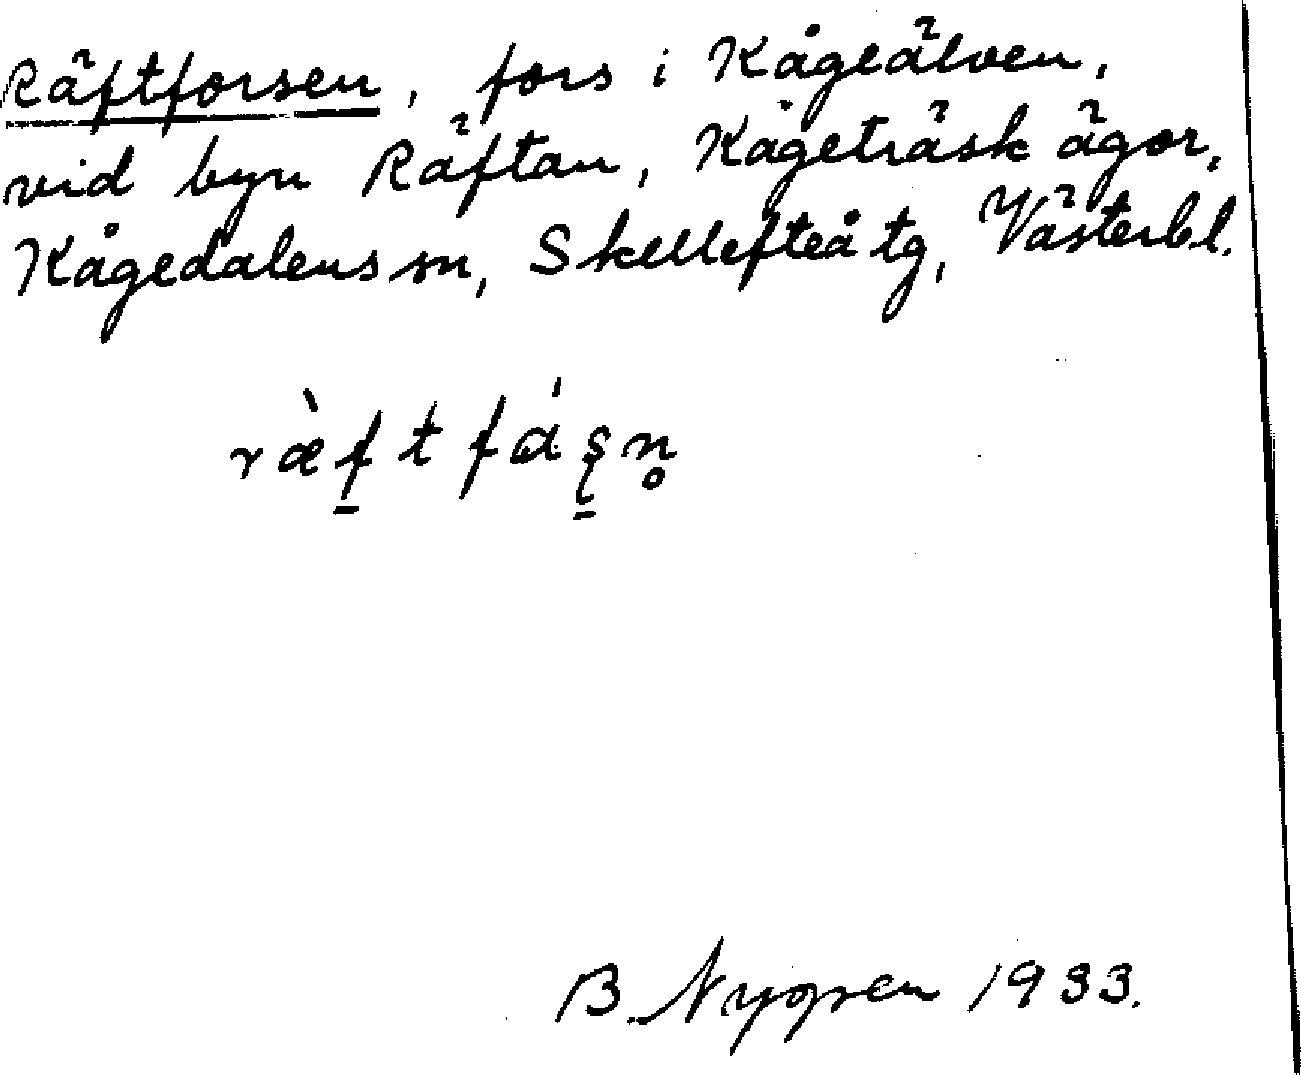 Räftforsen, fors i Kågeälven,
vid byn Räftan, Kågeträsk ägor,
Kågedalens sn, Skellefteå tg, Västerbl.
ræ̀f̠tfɑ́ʂ̠n̥
B. Nygren 1933.